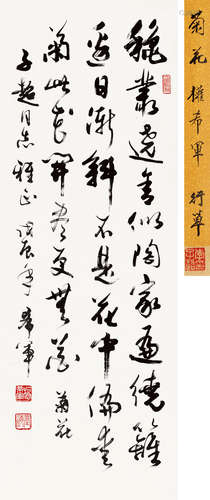 菊花 權希軍 行草
穐叢遶舍似陶家遍繞籬
邊日漸斜不是花中偏愛
菊此花開盡更無花 菊花
子超同志雅正 戊辰年 希軍